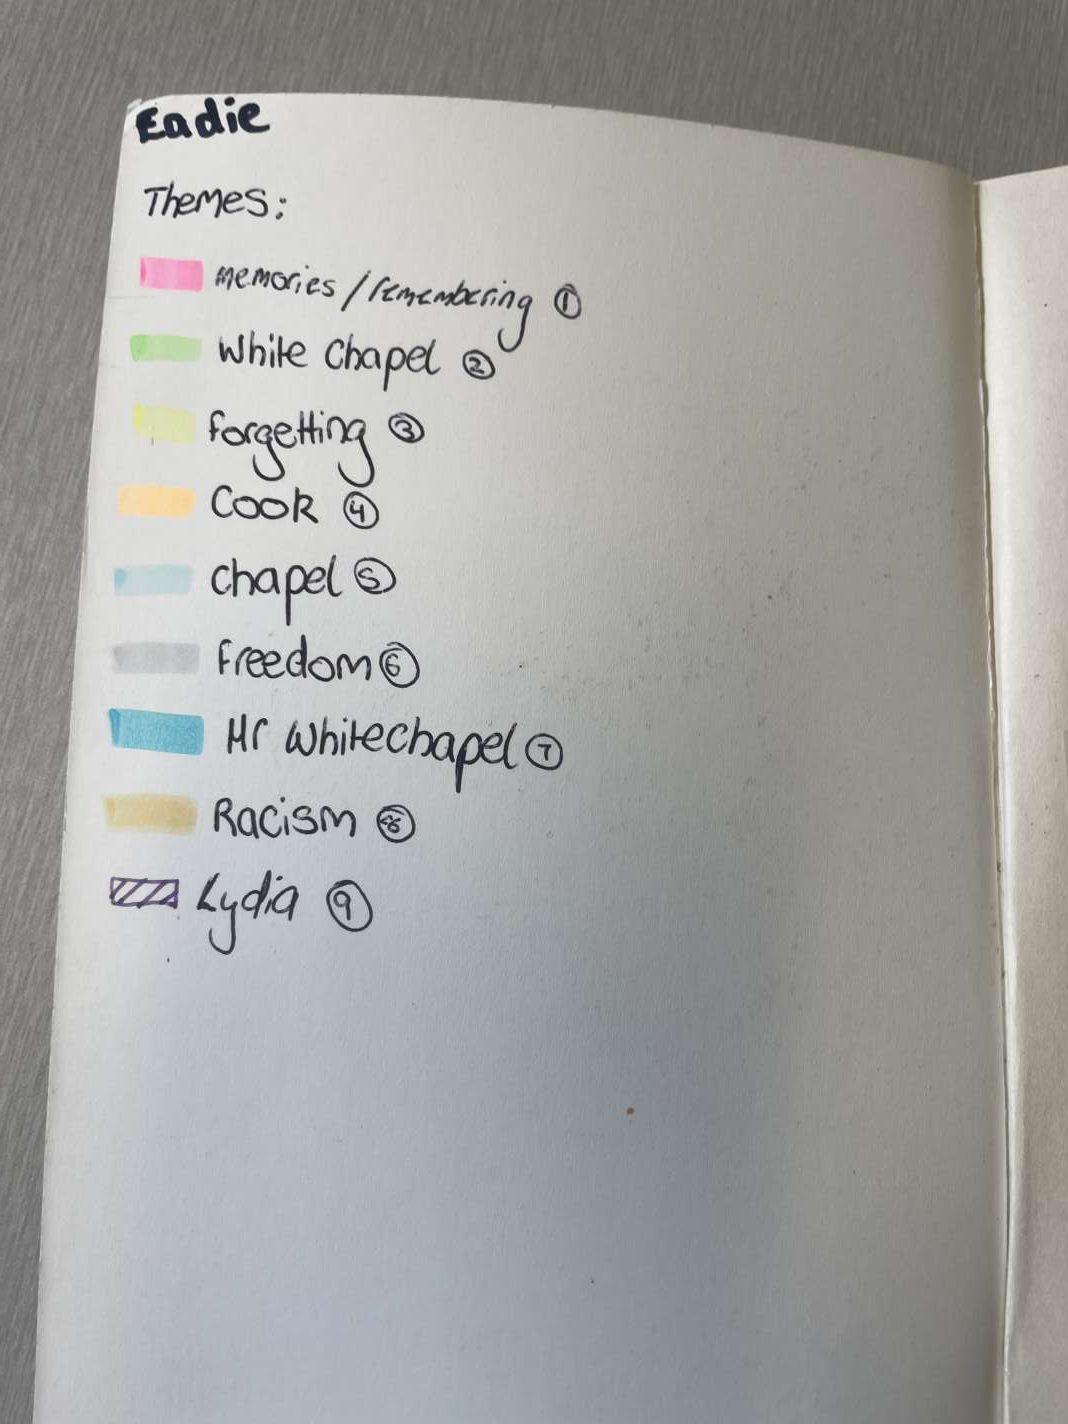 Eadie
Themes:
memories/remembering ①
White Chapel ②
forgetting ③
Cook ④
chapel ⑤
freedom ⑥
Mr Whitechapel ⑦
Racism ⑧
Lydia ⑨